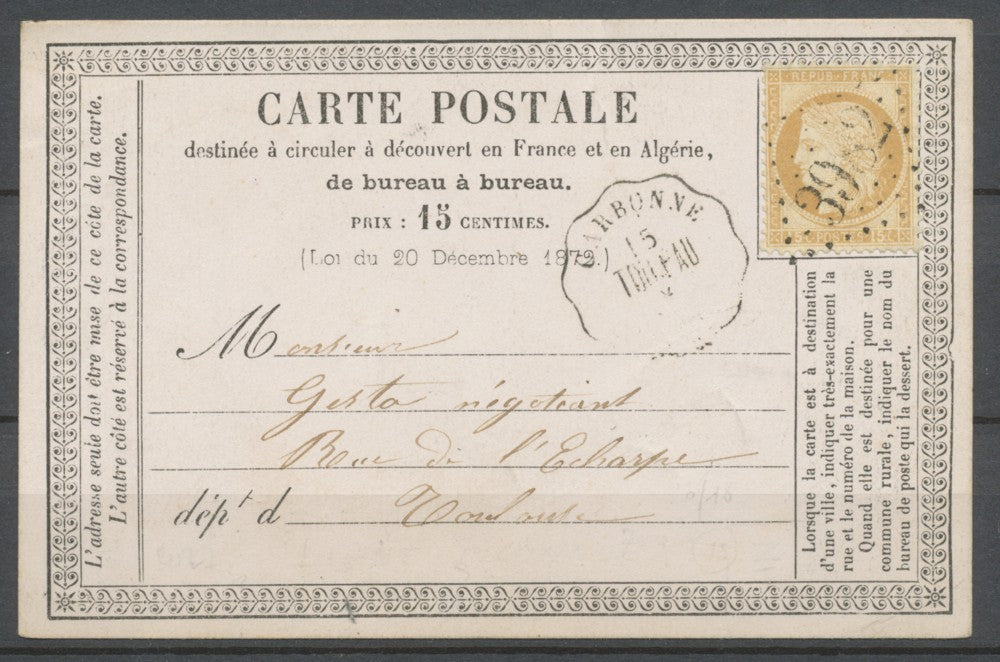 CARTE POSTALE
destinée à circuler à découvert en France et en Algérie,
de bureau à bureau.
PRIX : 15 CENTIMES.
(Loi du 20 Décembre 1872.)
Monsieur
Gesta négociant
Rue de l'Echarpe
dépt d Toulouse
L'adresse seule doit être mise de ce côté de la carte.
L'autre côté est réservé à la correspondance.
REPUB FRANC
3982
15
CARBONNE
15
TOUL AU
Lorsque la carte est à destination
d'une ville, indiquer très-exactement la
rue et le numéro de la maison.
Quand elle est destinée pour une
commune rurale, indiquer le nom du
bureau de poste qui la dessert.